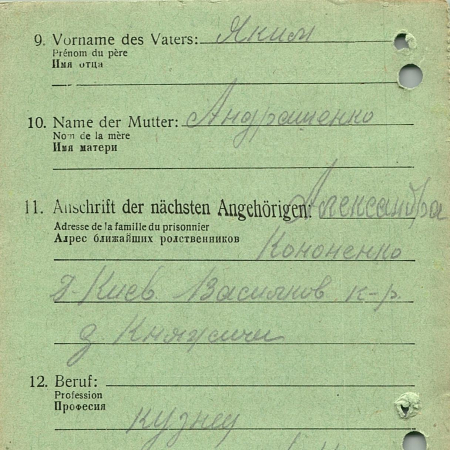 9. Vorname des Vaters: Яким
Prénom du père
Имя отца
10. Name der Mutter: Андрашенко
Nom de la mère
Имя матери
11. Anschrift der nächsten Angehörigen: Александра
Adresse de la famille du prisonnier
Адрес ближайших родственников
Кононенко
Киев Васильков к-р.
д. Княжичи
12. Beruf:
Profession
Професия
кузнец